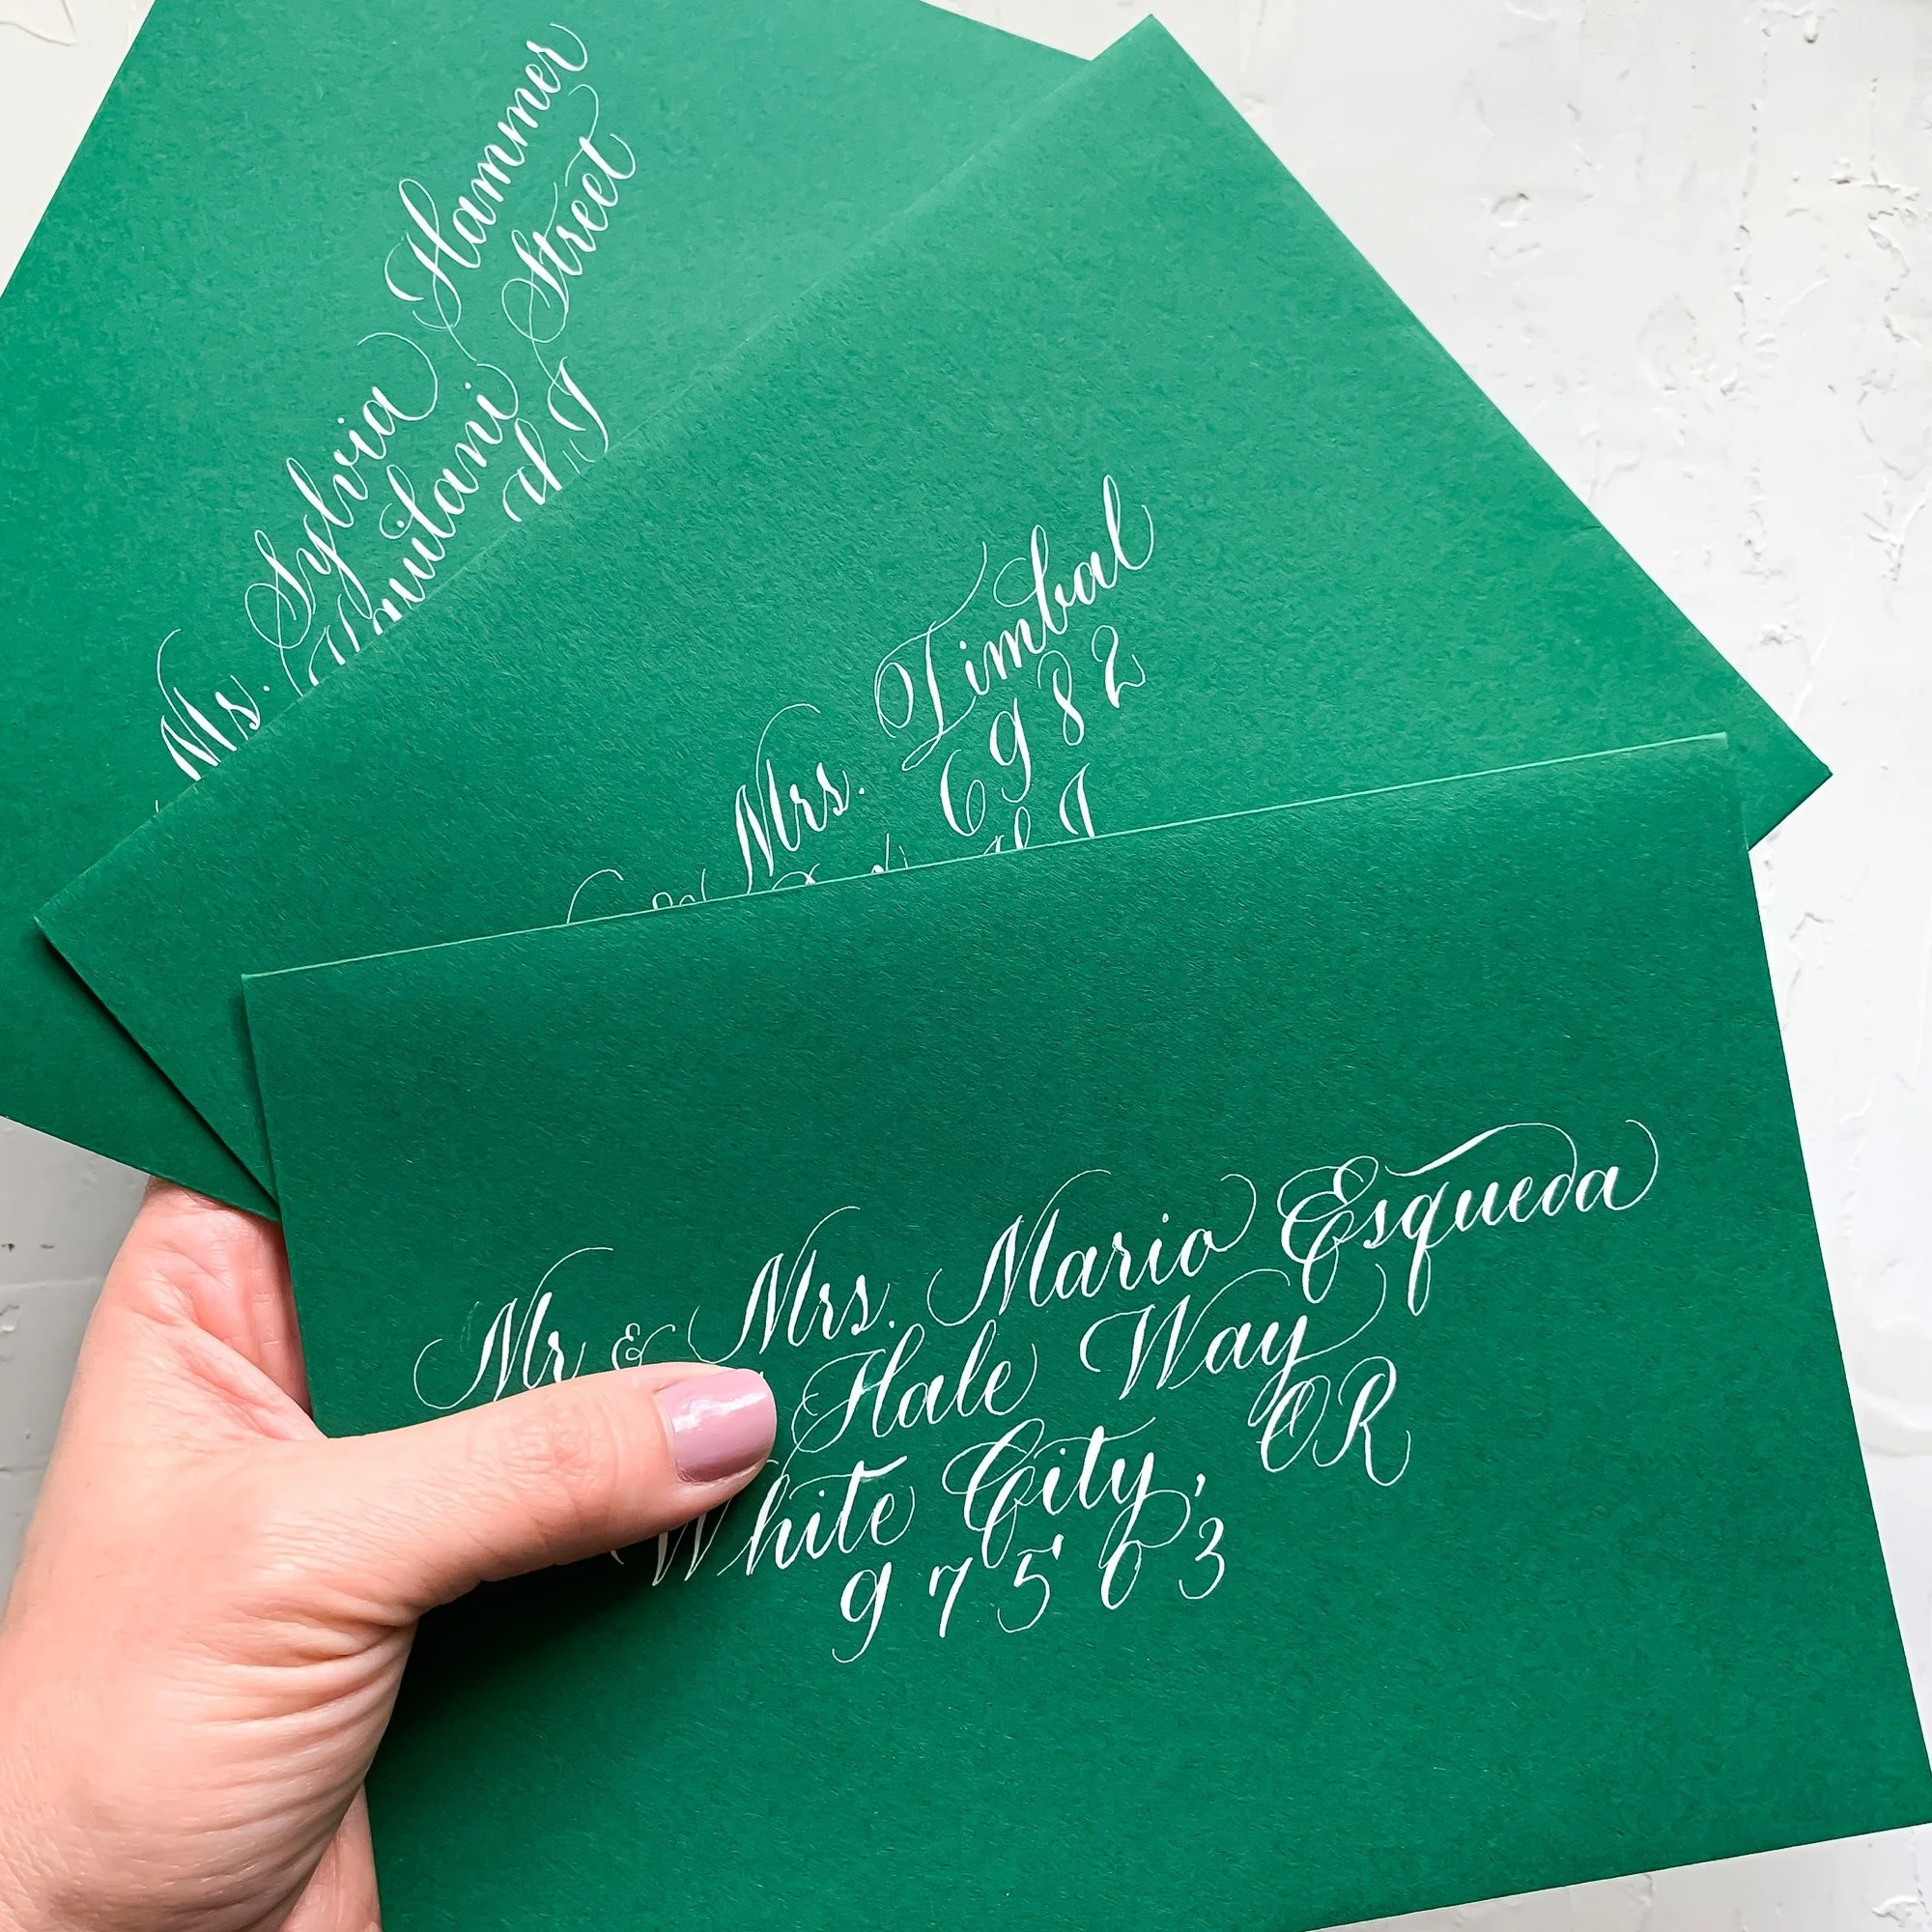 Ms. Sylvia Hammer
Street
Mrs. Limbal
6982
Mr & Mrs. Mario Esqueda
Hale Way
White City, OR
97563